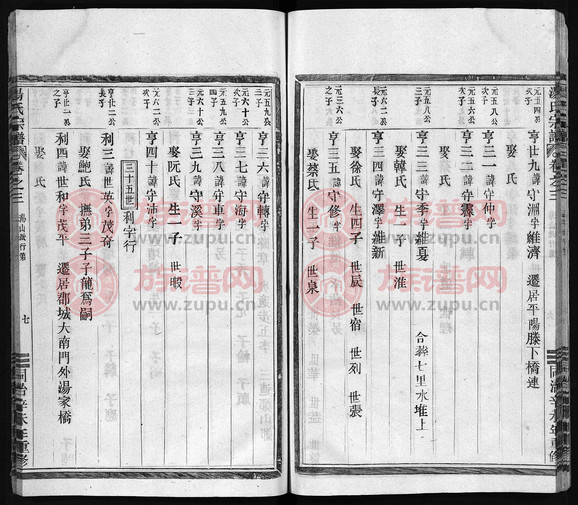 湯氏宗譜 卷之三
元五四公次子
亨廿九諱守淵字維濟 遷居平陽滕下橋連
亨三一諱守仲
亨三二諱守
元五八公三子
亨三三諱守季字維夏 合葬七里水堆上
娶韓氏 生一子 世淮
亨三四諱守澤字維新
娶徐氏 生四子 世辰 世宿 世列 世張
元三六公次子
亨三五諱守修
娶蔡氏 生一子 世泉
同治辛未年重修
元五九公
亨三六諱守轉
元五二公四子
亨三七諱守海
亨三八諱守車
元六十公三子
亨三九諱守溪
娶阮氏 生一子 世暇
元六二公次子
亨四十諱守沛
三十五世利字行
亨廿二公長子
利三諱世英字茂奇
娶鮑氏 撫弟三子子龍爲嗣
亨廿二公之子
利四諱世和字茂平 遷居郡城大南門外湯家橋
娶 氏
湯氏宗譜 卷之三 行第 七
同治辛未年重修
族谱网
www.zupu.cn
族谱网
www.zupu.cn